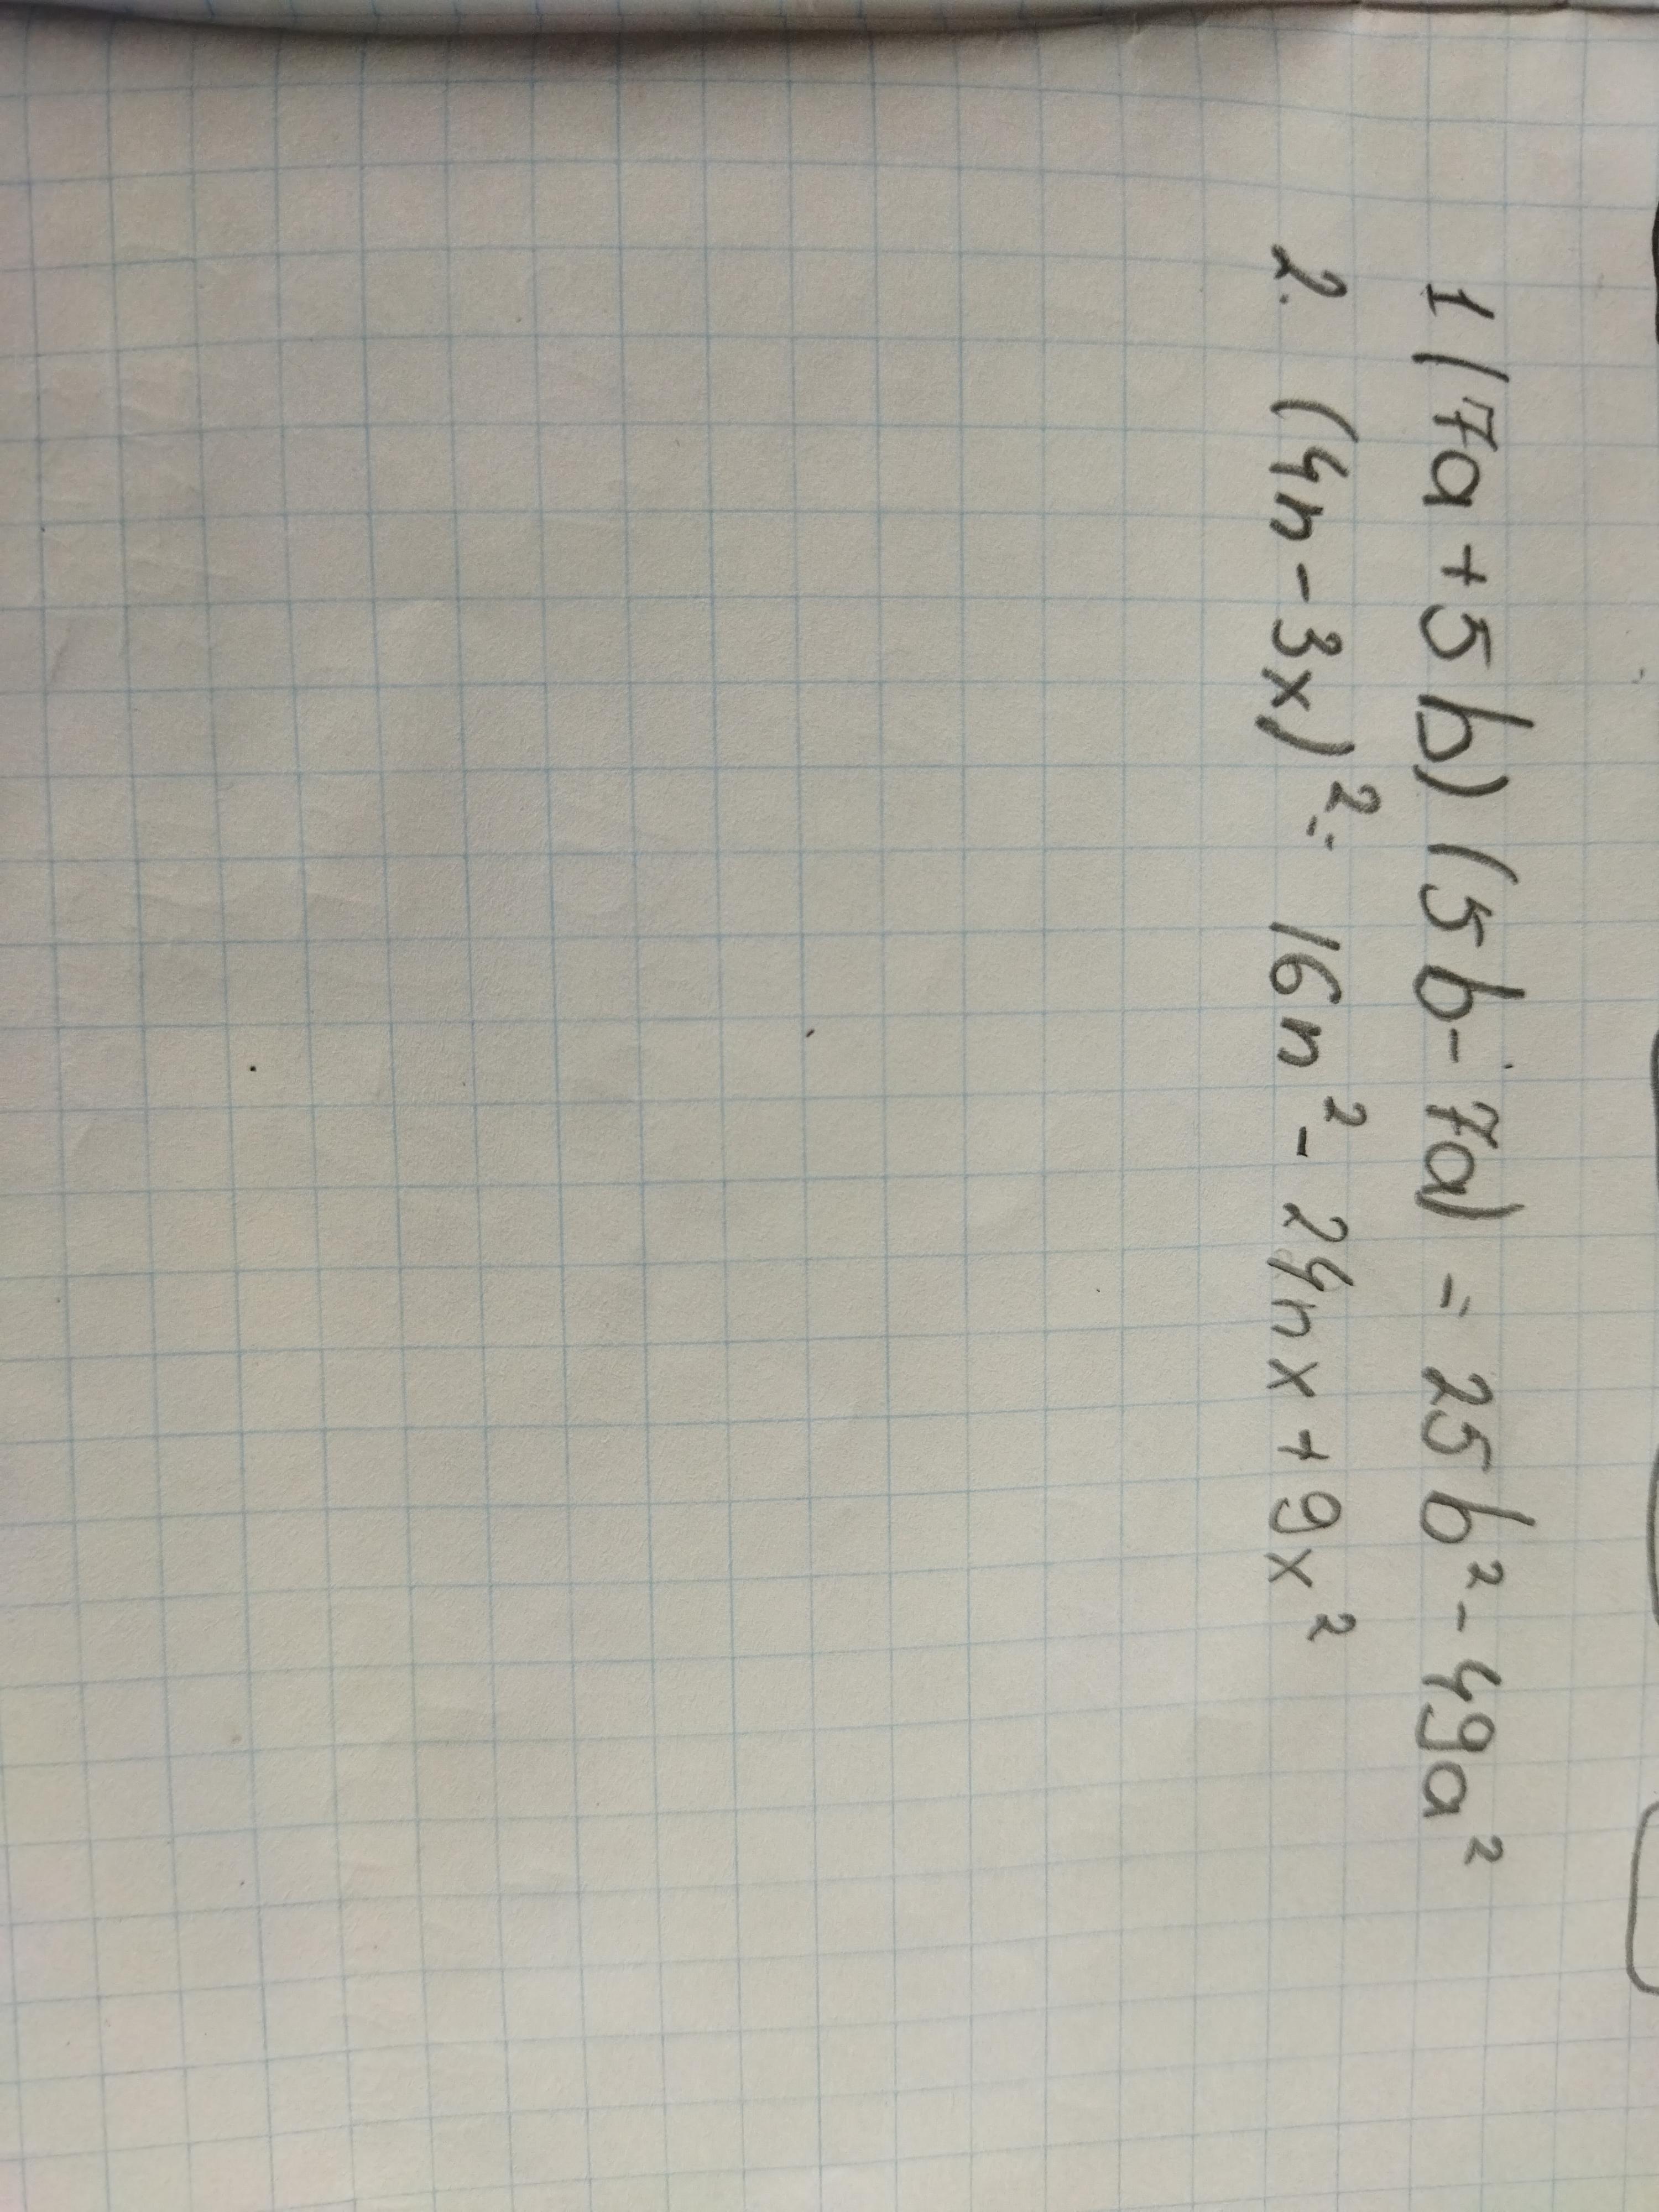 1 (7a + 5b) (5b - 7a) = 25b² - 49a²
2. (4n - 3x)² = 16n² - 24nx + 9x²